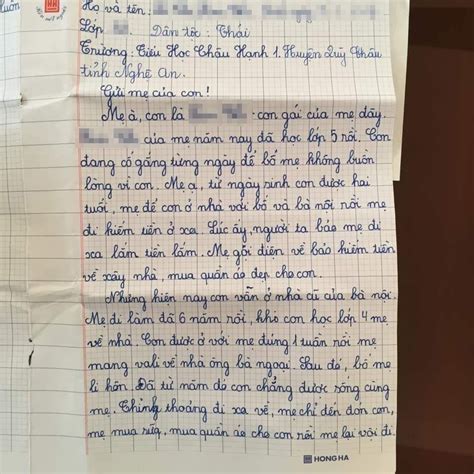 luôn
Họ và tên:
Lớp Dân tộc: Thái
Trường: Tiểu Học Châu Hạnh 1. Huyện Quỳ Châu
tỉnh Nghệ An.
Gửi mẹ của con!
Mẹ à, con là con gái của mẹ đây.
của mẹ năm nay đã học lớp 5 rồi. Con
đang cố gắng từng ngày để bố mẹ không buồn
lòng vì con. Mẹ ạ, từ ngày sinh con được hai
tuổi, mẹ để con ở nhà với bố và bà nội rồi mẹ
đi kiếm tiền ở xa. Lúc ấy, người ta bảo mẹ đi
xa lắm tiền lắm. Mẹ gọi điện về bảo kiếm tiền
về xây nhà, mua quần áo đẹp cho con.
Nhưng hiện nay con vẫn ở nhà cũ của bà nội.
Mẹ đi làm đã 6 năm rồi, khi con học lớp 4 mẹ
về nhà. Con được ở với mẹ đúng 1 tuần rồi mẹ
mang vali về nhà ông bà ngoại. Sau đó, bố mẹ
li hôn. Đã từ năm đó con chẳng được sống cùng
mẹ. Thỉnh thoảng đi xa về, mẹ chỉ đến đón con,
mẹ mua sữa, mua quần áo cho con rồi mẹ lại vội đi.
HONG HA